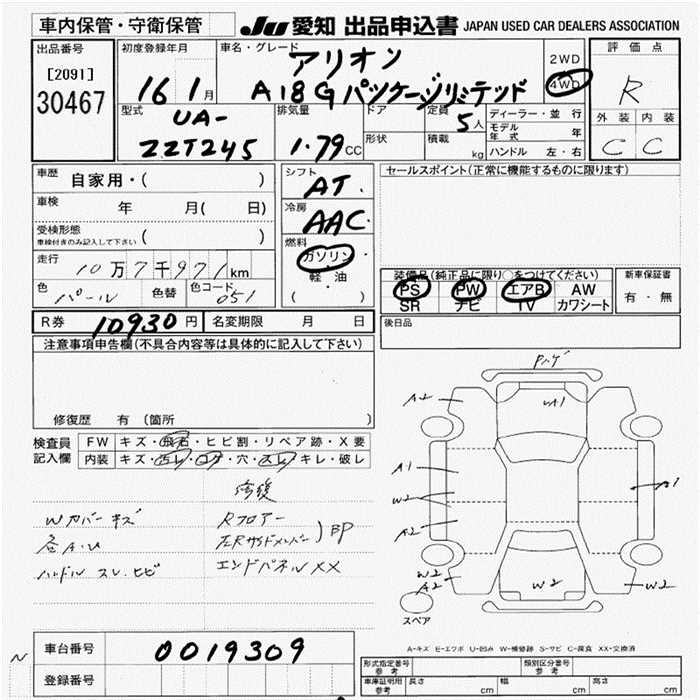 車内保管・守衛保管 JU 愛知 出品申込書 JAPAN USED CAR DEALERS ASSOCIATION
出品番号 初度登録年月 車名・グレード 評価点
[2091] アリオン 2WD
30467 16 1月 A18Gパッケージリミテッド 4WD R
型式 排気量 ドア 定員 5人 ディーラー・並行 外装 内装
UA- モデル年式 年
ZZT245 1.79CC 形状 積載 kg ハンドル 左・右 C C
車歴 自家用・( ) シフト AT. セールスポイント(正常に機能するものに限ります)
車検 年 月( 日) 冷房 AAC.
受検形態
車検付きのみ記入して下さい ( ) 燃料
ガソリン・
走行 10万7千971km 軽・油 装備品(純正品に限り○をつけてください) 新車保証書
色 パール 色替 色コード 051 ( ) PS PW エアB AW 有・無
SR ナビ TV カワシート
R券 10930円 名変期限 月 日 後日品
注意事項申告欄(不具合内容等は具体的に記入して下さい)
修復歴 有 (箇所 )
検査員記入欄 FW キズ・飛石・ヒビ割・リペア跡・X要
内装 キズ・汚レ・コゲ・穴・スレ・キレ・破レ
修復
Wカバーキズ Rフロアー
各A.U 左Rサイドメンバー ) BP
ハンドルスレ.ヒビ エンドパネルXX
A2 A1
A1 A1
W2
A2
W2
A2 W2 W2
スペア
A-キズ E-エクボ U-凹み W-補修跡 S-サビ C-腐食 XX-交換済
車台番号 0019309
N 登録番号
形式指定番号 参考 類別区分番号 参考
車庫証明用 参考 長さ cm 幅 cm 高さ cm